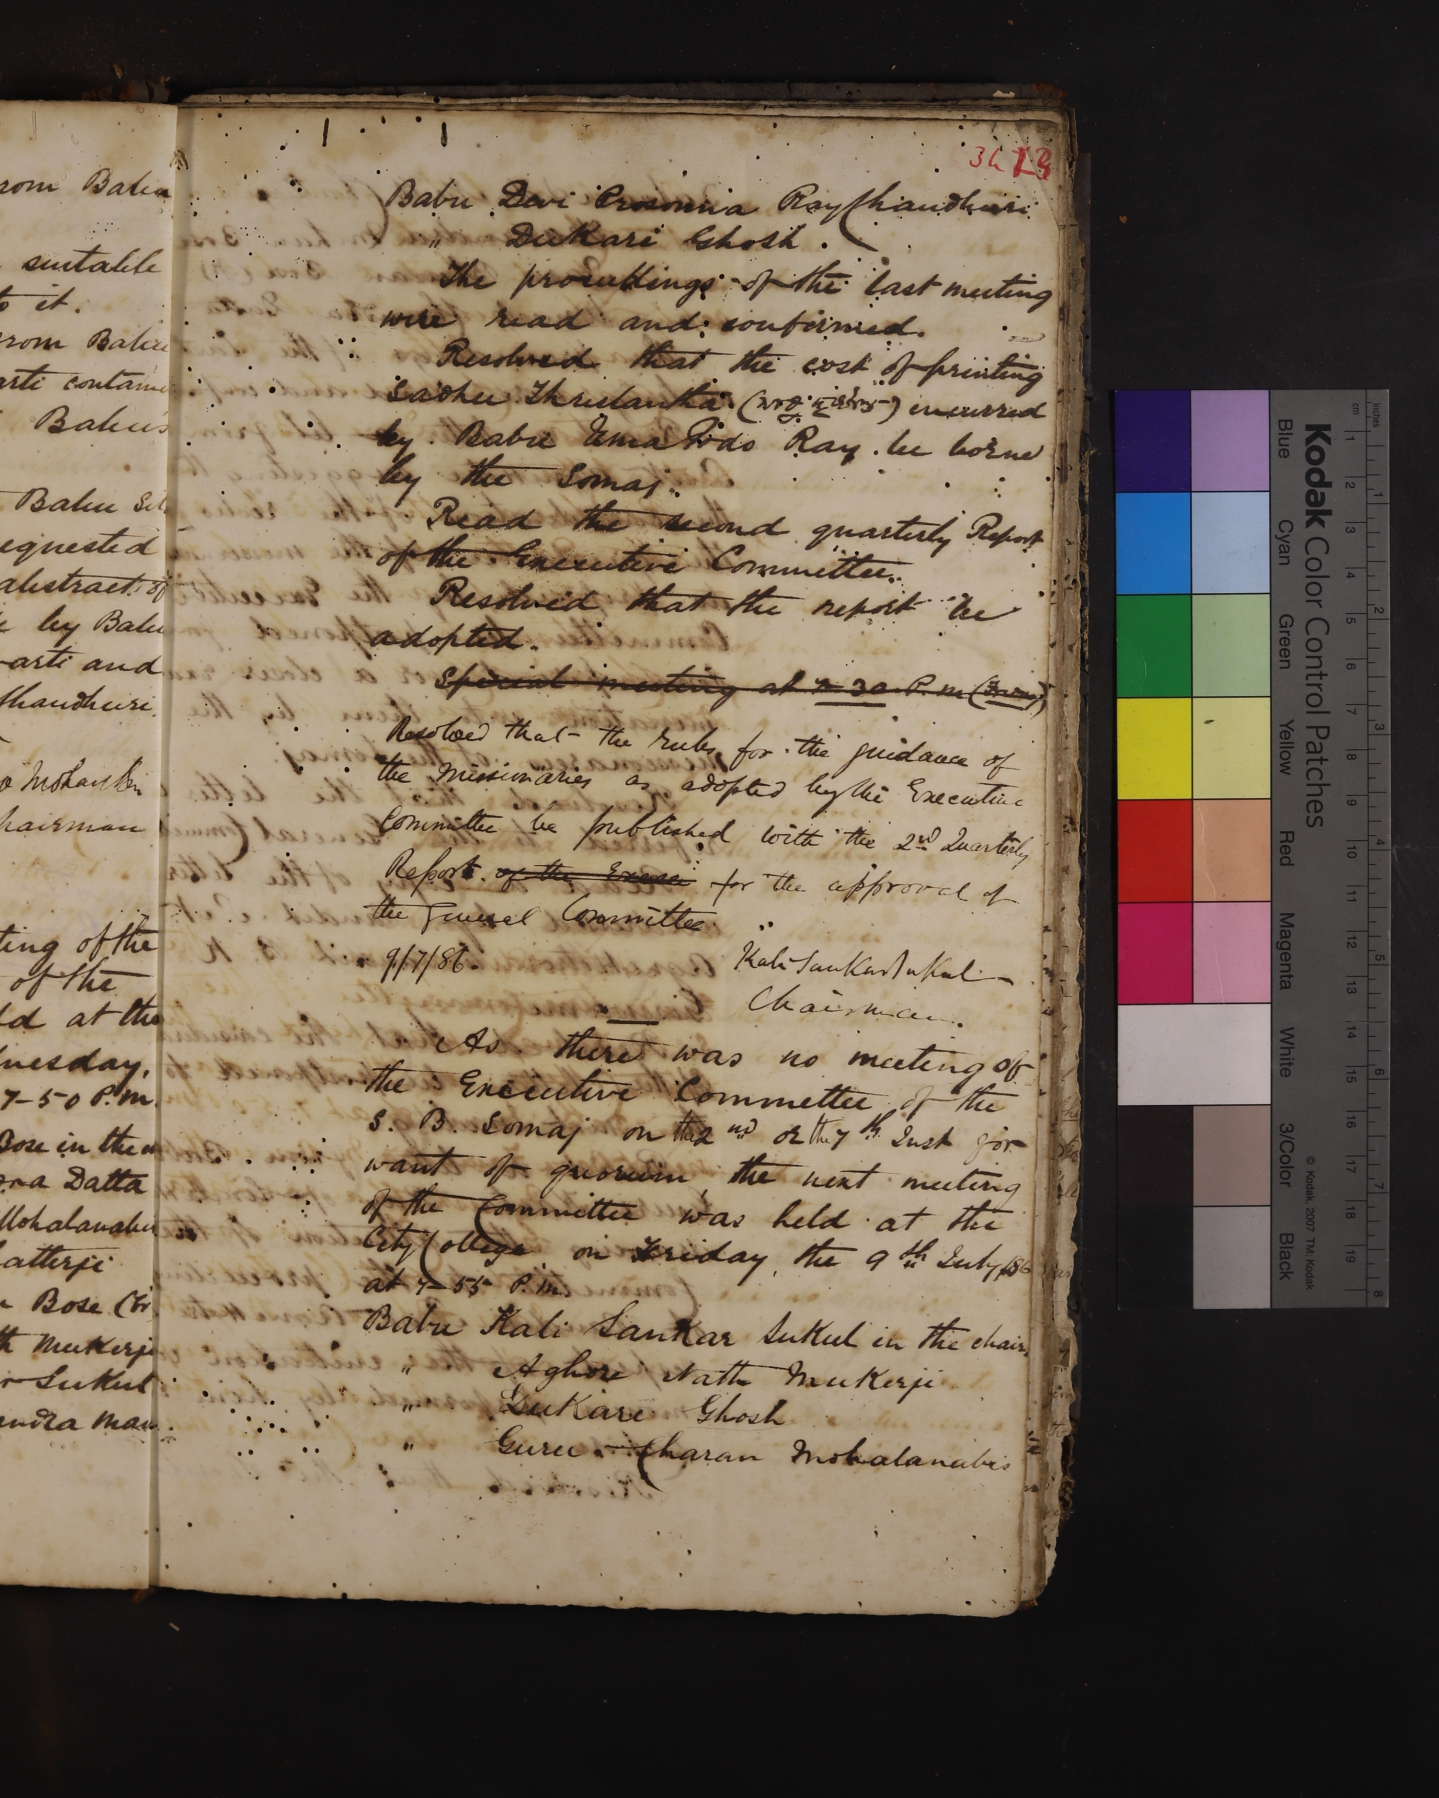 rom Babu
suitable
to it.
rom Babu
arti contain
Babu's
Babu
equested
abstract of
by Babu
arti and
Chaudhuri.
Chairman
ting of the
of the
ld at the
7-50 P.m.
Bose in the
Datta
Mohalanabis
atterji
Bose (Br.
th Mukerji
Sukul
andra
Babu Devi Prosonna Ray Chaudhuri
" Dukari Ghosh.
The proceedings of the last meeting
were read and confirmed.
Resolved that the cost of printing
Sadhu incurred
by Babu Uma Podo Ray be borne
by the Somaj.
Read the second quarterly Report
of the Executive Committee.
Resolved that the report be
adopted.
Special meeting at 7-30 P.m
Resolved that the rules for the guidance of
the Missionaries as adopted by the Executive
Committee be published with the 2nd Quarterly
Report of the for the approval of
the General Committee
9/7/86. Kali Sankar Sukul
Chairman.
As there was no meeting of
the Executive Committee of the
S. B. Somaj on the 2nd or the 7th Inst for
want of quorum the next meeting
of the Committee was held at the
City College on Friday, the 9th July/86
at 7-55 P.m.
Babu Kali Sankar Sukul in the chair.
" Aghore Nath Mukerji
" Dukari Ghosh
" Guru-Charan Mohalanabis
Kodak Color Control Patches
Blue Cyan Green Yellow Red Magenta White 3/Color Black
© Kodak, 2007 TM: Kodak
cm 1 2 3 4 5 6 7 8 9 10 11 12 13 14 15 16 17 18 19
Inches 1 2 3 4 5 6 7 8